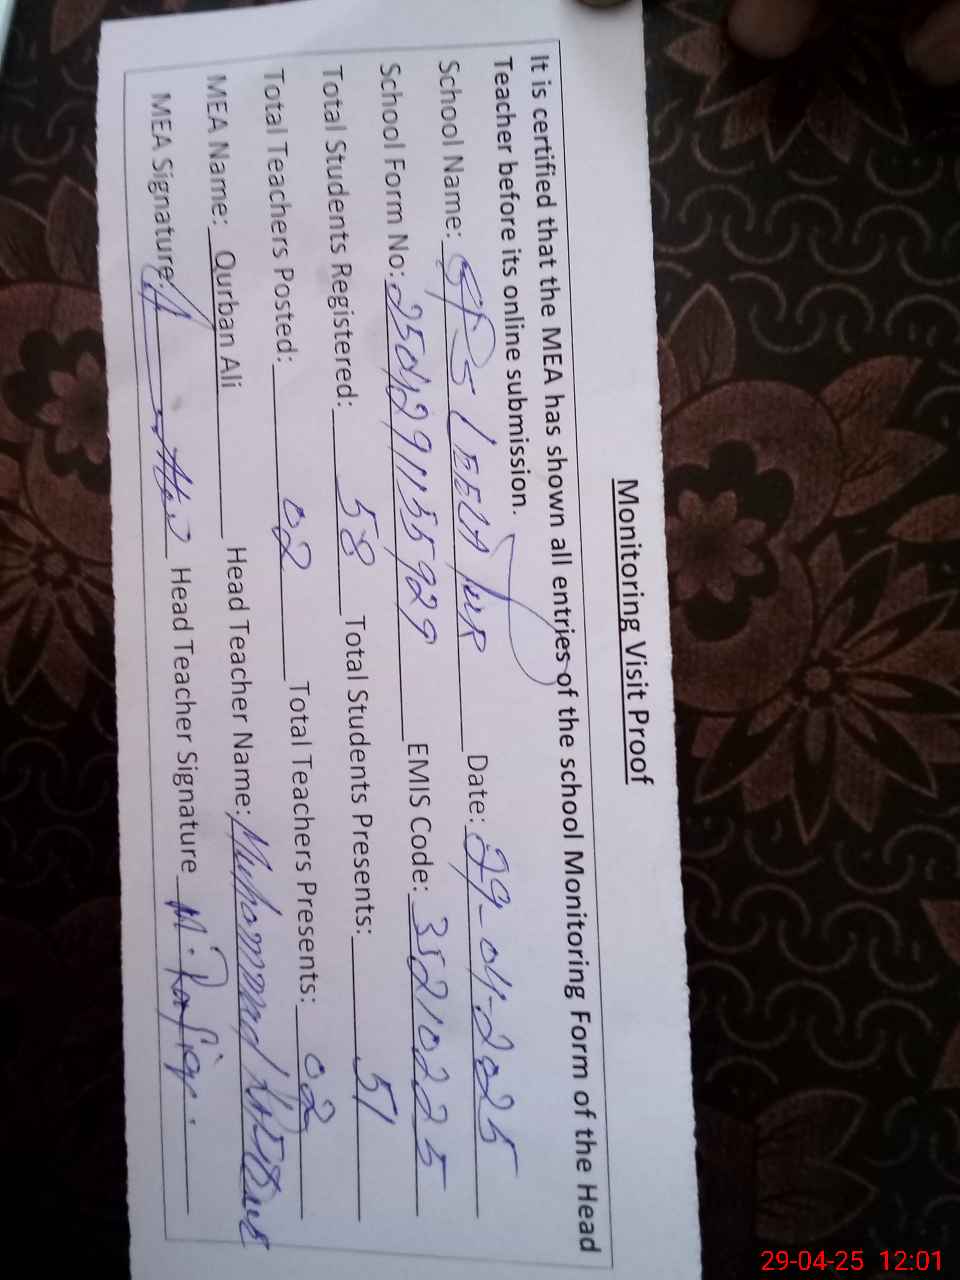 Monitoring Visit Proof
It is certified that the MEA has shown all entries of the school Monitoring Form of the Head
Teacher before its online submission.
School Name: GPS Date: 29-04-2025
School Form No: EMIS Code: 35210225
Total Students Registered: 58 Total Students Presents: 51
Total Teachers Posted: 02 Total Teachers Presents: 02
MEA Name: Qurban Ali Head Teacher Name: Muhammad
MEA Signature: Head Teacher Signature M. Rafiq.
29-04-25 12:01